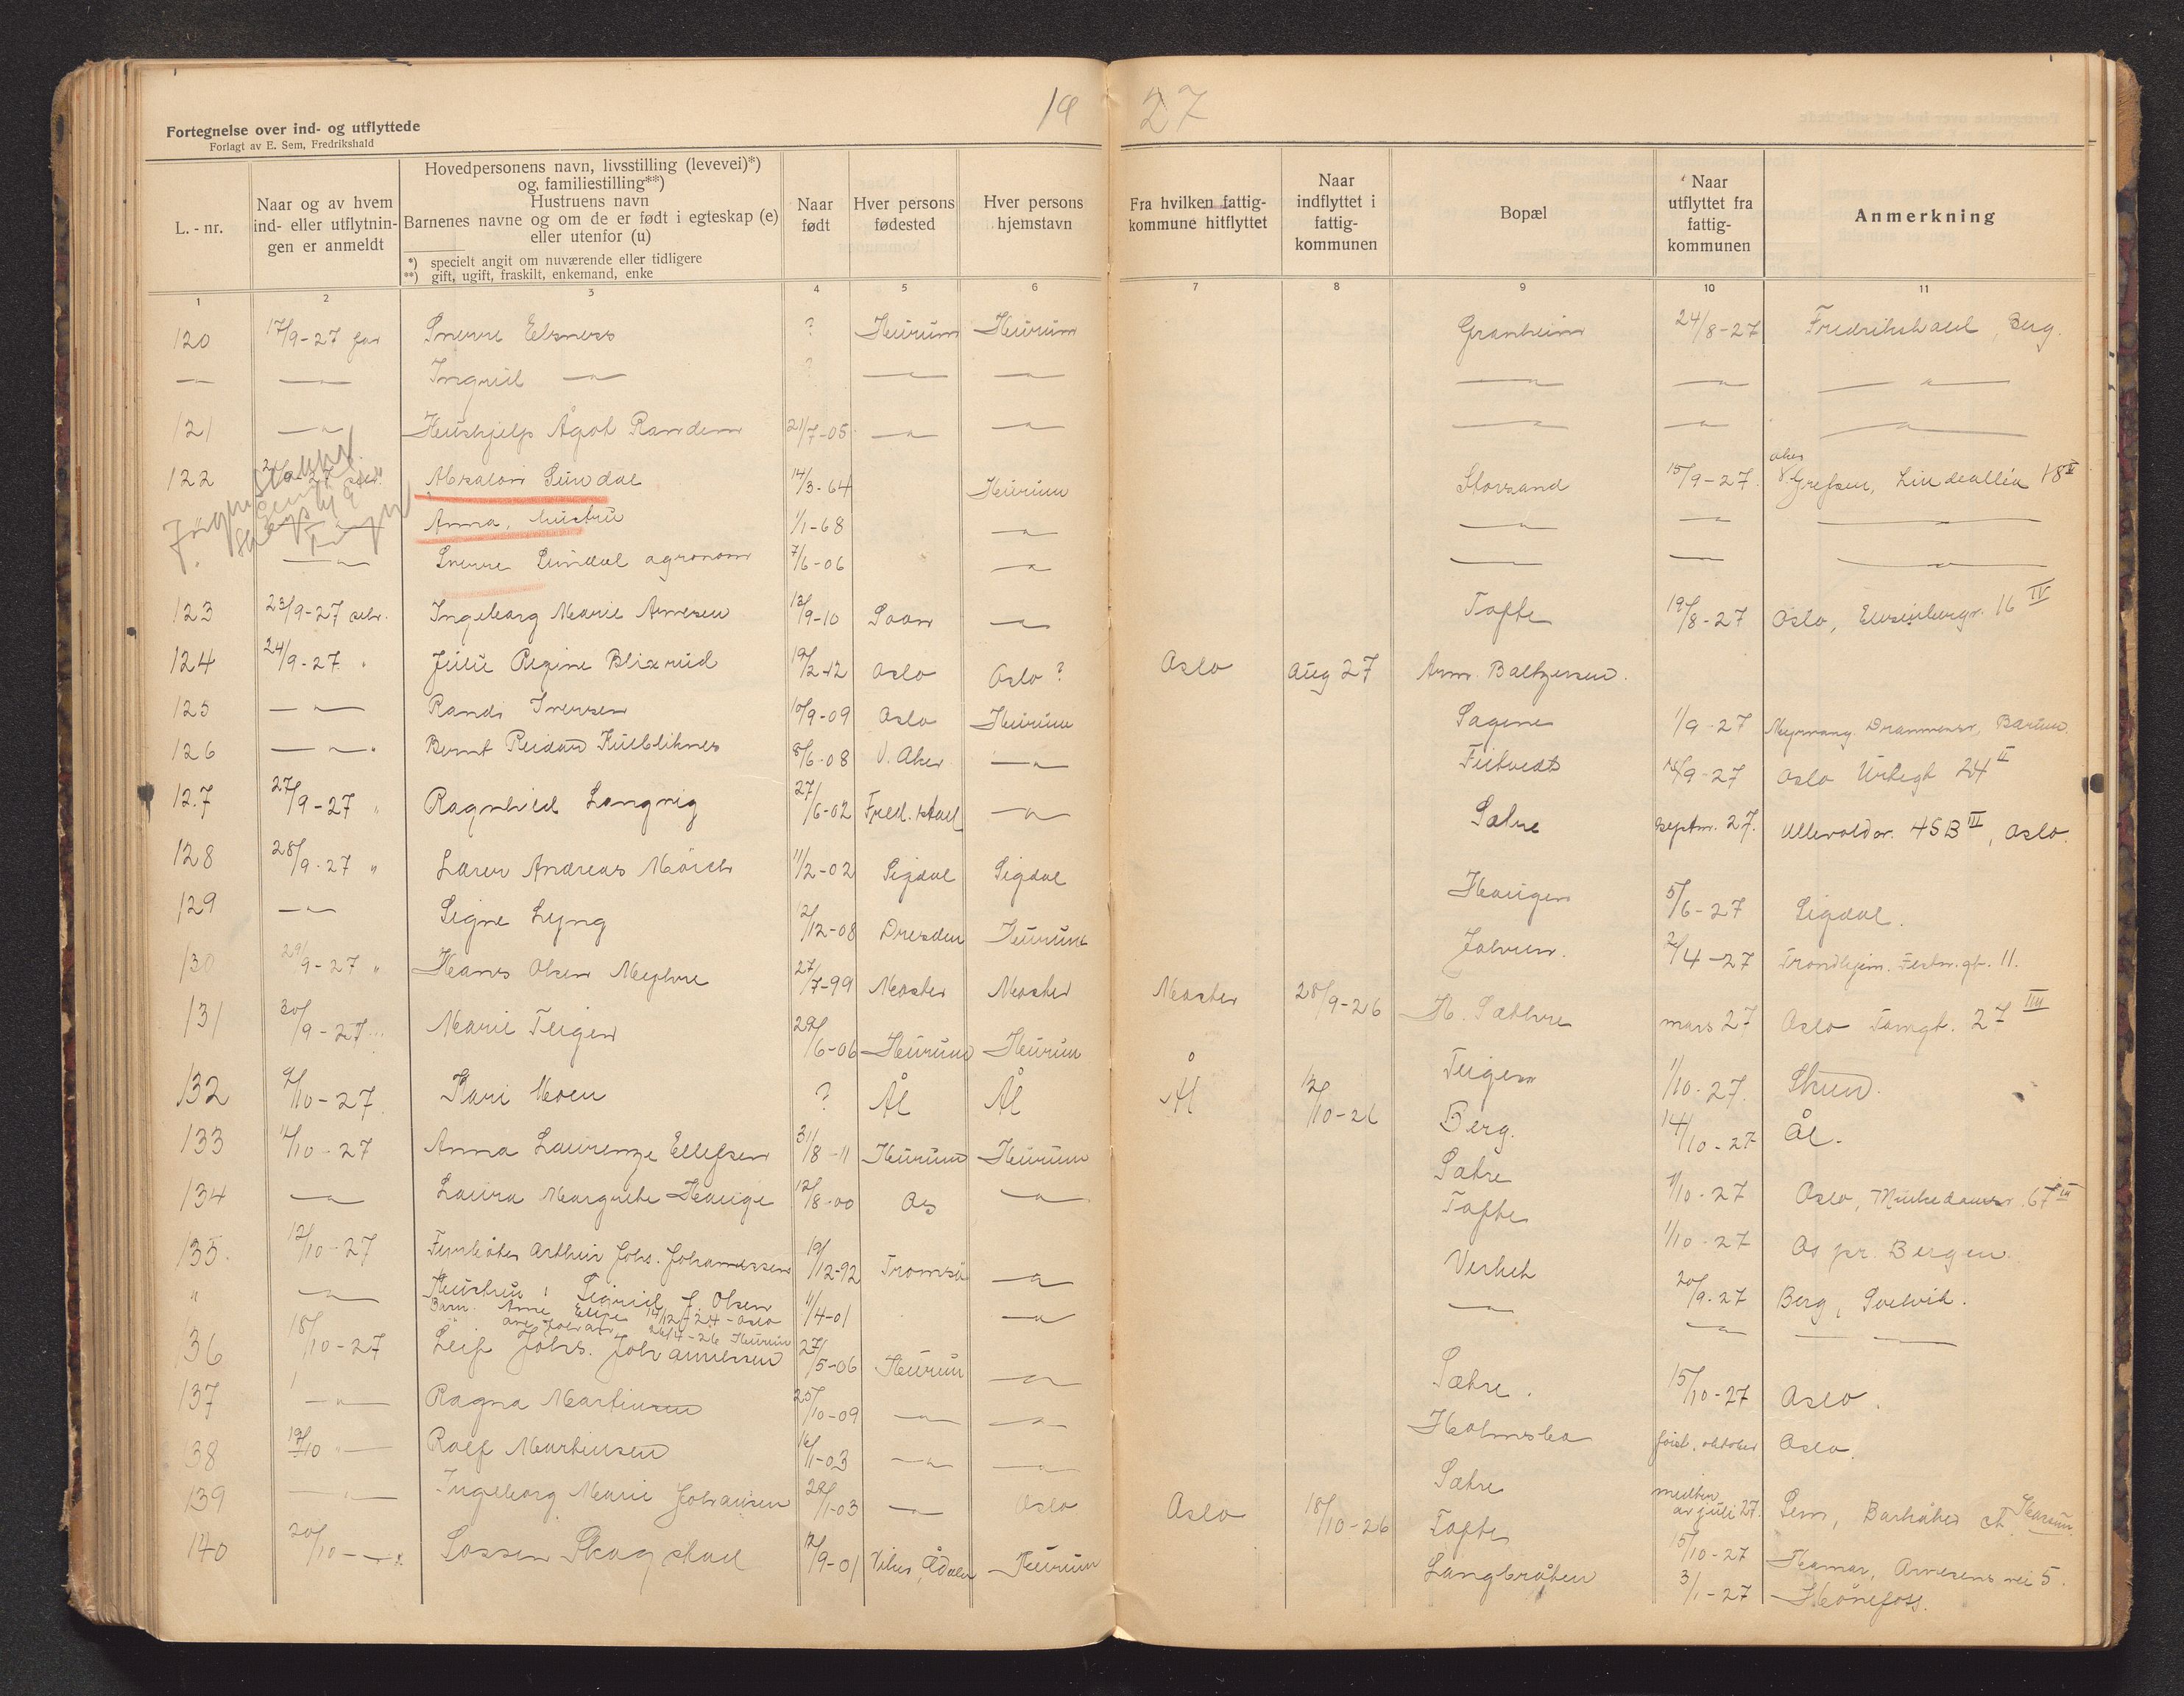 19 27
Fortegnelse over ind- og utflyttede
Forlagt av E. Sem, Fredrikshald
L. - nr.
Naar og av hvem
ind- eller utflytnin-
gen er anmeldt
Hovedpersonens navn, livsstilling (levevei)*)
og familiestilling**)
Hustruens navn
Barnenes navne og om de er født i egteskap (e)
eller utenfor (u)
*) specielt angit om nuværende eller tidligere
**) gift, ugift, fraskilt, enkemand, enke
Naar
født
Hver persons
fødested
Hver persons
hjemstavn
Fra hvilken fattig-
kommune hitflyttet
Naar
indflyttet i
fattig-
kommunen
Bopæl
Naar
utflyttet fra
fattig-
kommunen
Anmerkning
1 2 3 4 5 6 7 8 9 10 11
120 17/9-27 far Snerre ? Hurum Hurum Granheim 24/8-27 Fredrikshald, Berg.
— — Ingrid —"— ? —"— —"— —"— —"— —"—
121 —"— Hushjelp Ågot Randem 21/7-05 —"— —"— —"— —"— —"—
122 Absalon Sundal 14/3-64 Hurum Storsand 15/9-27 Aker
Grefsen, Lindealléen 18 II
Anna, hustru 1/1-68 —"— —"— —"— —"—
" —"— Sverre Sundal agronom 7/6-06 —"— —"— —"— —"—
123 23/9-27 selv. Ingeborg Marie Arnesen 13/9-10 Soon —"— Tofte 19/8-27 Oslo, 16 IV
124 24/9-27 " Julie Regine Blixrud 19/2-12 Oslo Oslo ? Oslo Aug 27 Arm. Baltzersen.
125 —"— Randi Iversen 10/9-09 Oslo Hurum Sagene 1/9-27 Drammensv, Bærum.
126 —"— Bernt Reidar 8/6-08 V. Aker —"— Filtvedt 14/9-27 Oslo Urtegt 24 II
127 27/9-27 " Ragnhild Langvig 27/6-02 Fred.stad —"— Sætre septm. 27. Ullevoldsv. 45B III, Oslo.
128 28/9-27 " Larer Andreas Mörch 11/2-02 Sigdal Sigdal Haugen 5/6-27 Sigdal.
129 —"— Signe Lyng 12/12-08 Dresden Hurum 2/4-27 Trondhjem. 11.
130 29/9-27 " Hans Olsen 27/7-99 Moster Moster Moster 28/9-26 N. Sæthre mars 27 Oslo Tomgt. 27 IIII
131 30/9-27 " Marie Teigen 29/6-06 Hurum Hurum Teigen 1/10-27. Skien.
132 4/10-27. Kari Moen ? Ål Ål Ål 12/10-26 Berg. 14/10-27 Ål.
133 11/10-27 Anna Laurenze Ellefsen 31/8-11 Hurum Hurum Sætre 1/10-27 Oslo, Munkedamsv. 67 III
134 —"— Laura Margrethe Hauge 12/8-00 Os —"— Tofte 1/10-27 Os pr. Bergen.
135. 12/10-27 Fyrbøter Arthur Johs. Johannessen 19/12-92 Tromsö —"— Verket 20/9-27 Berg, Svelvik.
" —"— Hustru: Sigrid J. Olsen 11/4-01 —"— —"— —"— —"—
Barn: Arne 14/12 24 - Oslo
26/4-26 Hurum
36 18/10-27 Leif Johs. Johannessen 27/5-06 Hurum —"— Sætre. 15/10-27 Oslo.
137 —"— Ragna Martinsen 25/10-09 —"— —"— Holmsbo först. oktober Oslo.
38 19/10 —"— Rolf Martinsen 16/1-03 —"— —"— Sætre medten av juli 27. Sem, Barkåker st.
139 —"— Ingeborg Marie Johansen 28/1-03 —"— Oslo Oslo 18/10-26 Tofte 15/10-27 Hamar, Arnesens vei 5.
140 20/10 —"— Lossen Skagstad 12/9-01 Ådalen Hurum Langbråten 3/1-27 Hönefoss.